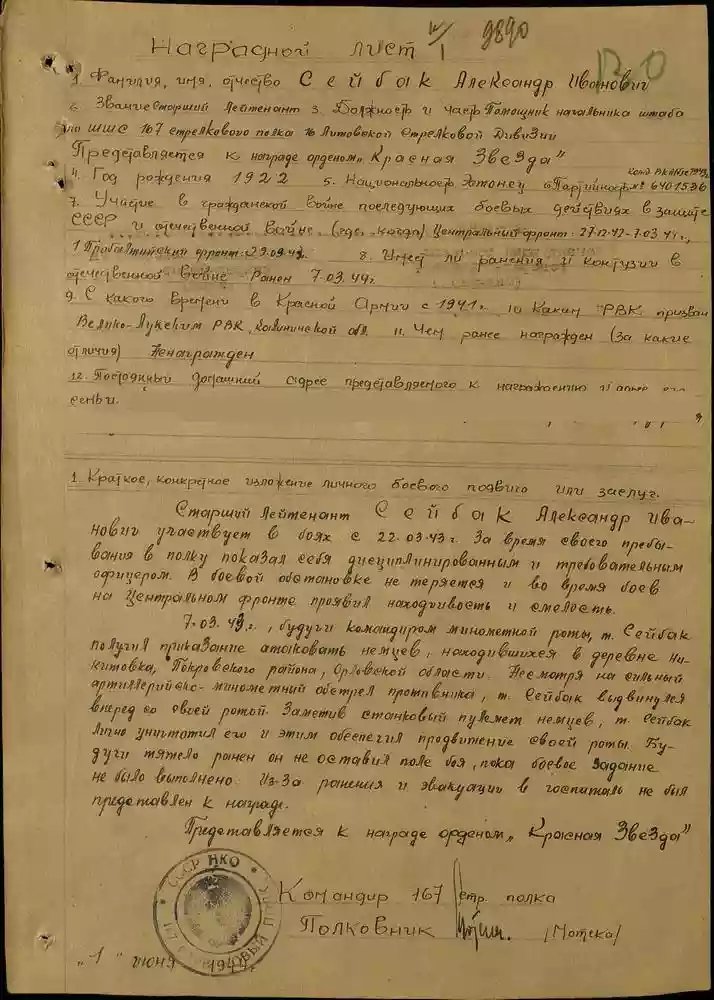 Наградной лист 9890
1. Фамилия, имя, отчество Сейбак Александр Иванович
2. Звание Старший Лейтенант 3. Должность и часть Помощник начальника штаба
по ШШС 167 стрелкового полка 16 Литовской Стрелковой Дивизии
Представляется к награде орденом „Красная Звезда"
4. Год рождения 1922 5. Национальность Эстонец 6 Партийность № 6401536
7. Участие в гражданской войне последующих боевых действиях в защите
СССР и отечественной войне (где, когда) Центральный фронт: 27-12-42-7.03.
1 Прибалтийский фронт: 8. Имеет ли ранения и контузии в
отечественной войне Ранен 7.03.
9. С какого времени в Красной Армии с 1941 г. 10 Каким РВК призван
Велико-Лукским РВК, Калининской обл. 11. Чем ранее награжден (за какие
отличия) Ненагражден
12. Постоянный домашний адрес представляемого к награждению и адрес его
семьи.
1. Краткое, конкретное изложение личного боевого подвига или заслуг.
Старший Лейтенант Сейбак Александр Ива-
нович участвует в боях с 22.03.43 г. За время своего пребы-
вания в полку показал себя дисциплинированным и требовательным
офицером. В боевой обстановке не теряется и во время боев
на Центральном фронте проявил находчивость и смелость.
7.03.43 г., будучи командиром минометной роты, т. Сейбак
получил приказание атаковать немцев, находившихся в деревне Ни-
китовка, Покровского района, Орловской области. Несмотря на сильный
артиллерийско-минометный обстрел противника, т. Сейбак выдвинулся
вперед со своей ротой. Заметив станковый пулемет немцев, т. Сейбак
лично уничтожил его и этим обеспечил продвижение своей роты. Бу-
дучи тяжело ранен он не оставил поле боя, пока боевое задание
не было выполнено. Из-за ранения и эвакуации в госпиталь не был
представлен к награде.
Представляется к награде орденом „Красная Звезда"
СССР НКО
Командир 167 стр. полка
Полковник /Мотека/
„1" июня 1944 г.